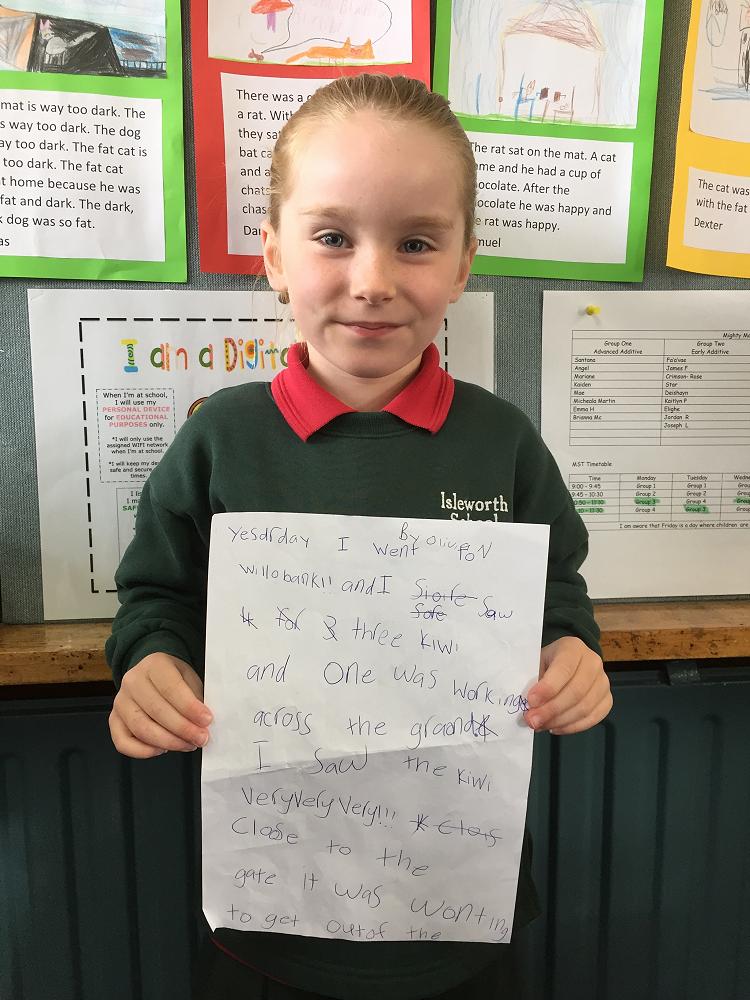 mat is way too dark. The
s way too dark. The dog
ay too dark. The fat cat is
too dark. The fat cat
t home because he was
fat and dark. The dark,
k dog was so fat.
as
There was a
a rat. With
they sat
bat ca
and a
chats
chas
Dan
The rat sat on the mat. A cat
me and he had a cup of
ocolate. After the
ocolate he was happy and
e rat was happy.
muel
The cat was
with the fat
Dexter
I am a Digita
When I'm at school,
I will use my
PERSONAL DEVICE
for EDUCATIONAL
PURPOSES only.
*I will only use the
assigned WIFI network
when I'm at school.
*I will keep my de
safe and secure
times.
Mighty Me
Group One Group Two
Advanced Additive Early Additive
Santana Fa'avae
Angel James F
Mariane Crimson-Rose
Kaiden Star
Mae Deishayn
Micheala Martin Kaitlyn P
Emma H Elighe
Brianna Mc Jordan R
Joseph L
MST Timetable
Time Monday Tuesday Wedne
9:00 - 9:45 Group 1 Group 1 Grou
9:45 - 10:30 Group 2 Group 4 Grou
Group 3 Group 4
Group 4 Group 3
I am aware that Friday is a day where children are
Isleworth
School
By Olive N
Yesdrday I went to
Willobank!! and I Saw
three kiwi
and One was working
across the ground
I Saw the kiwi
VeryVeryVery!!!
Close to the
gate it was wonting
to get outof the